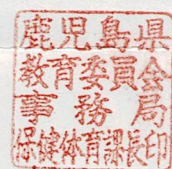 鹿児島県
教育委員会
事務局
保健体育課長印